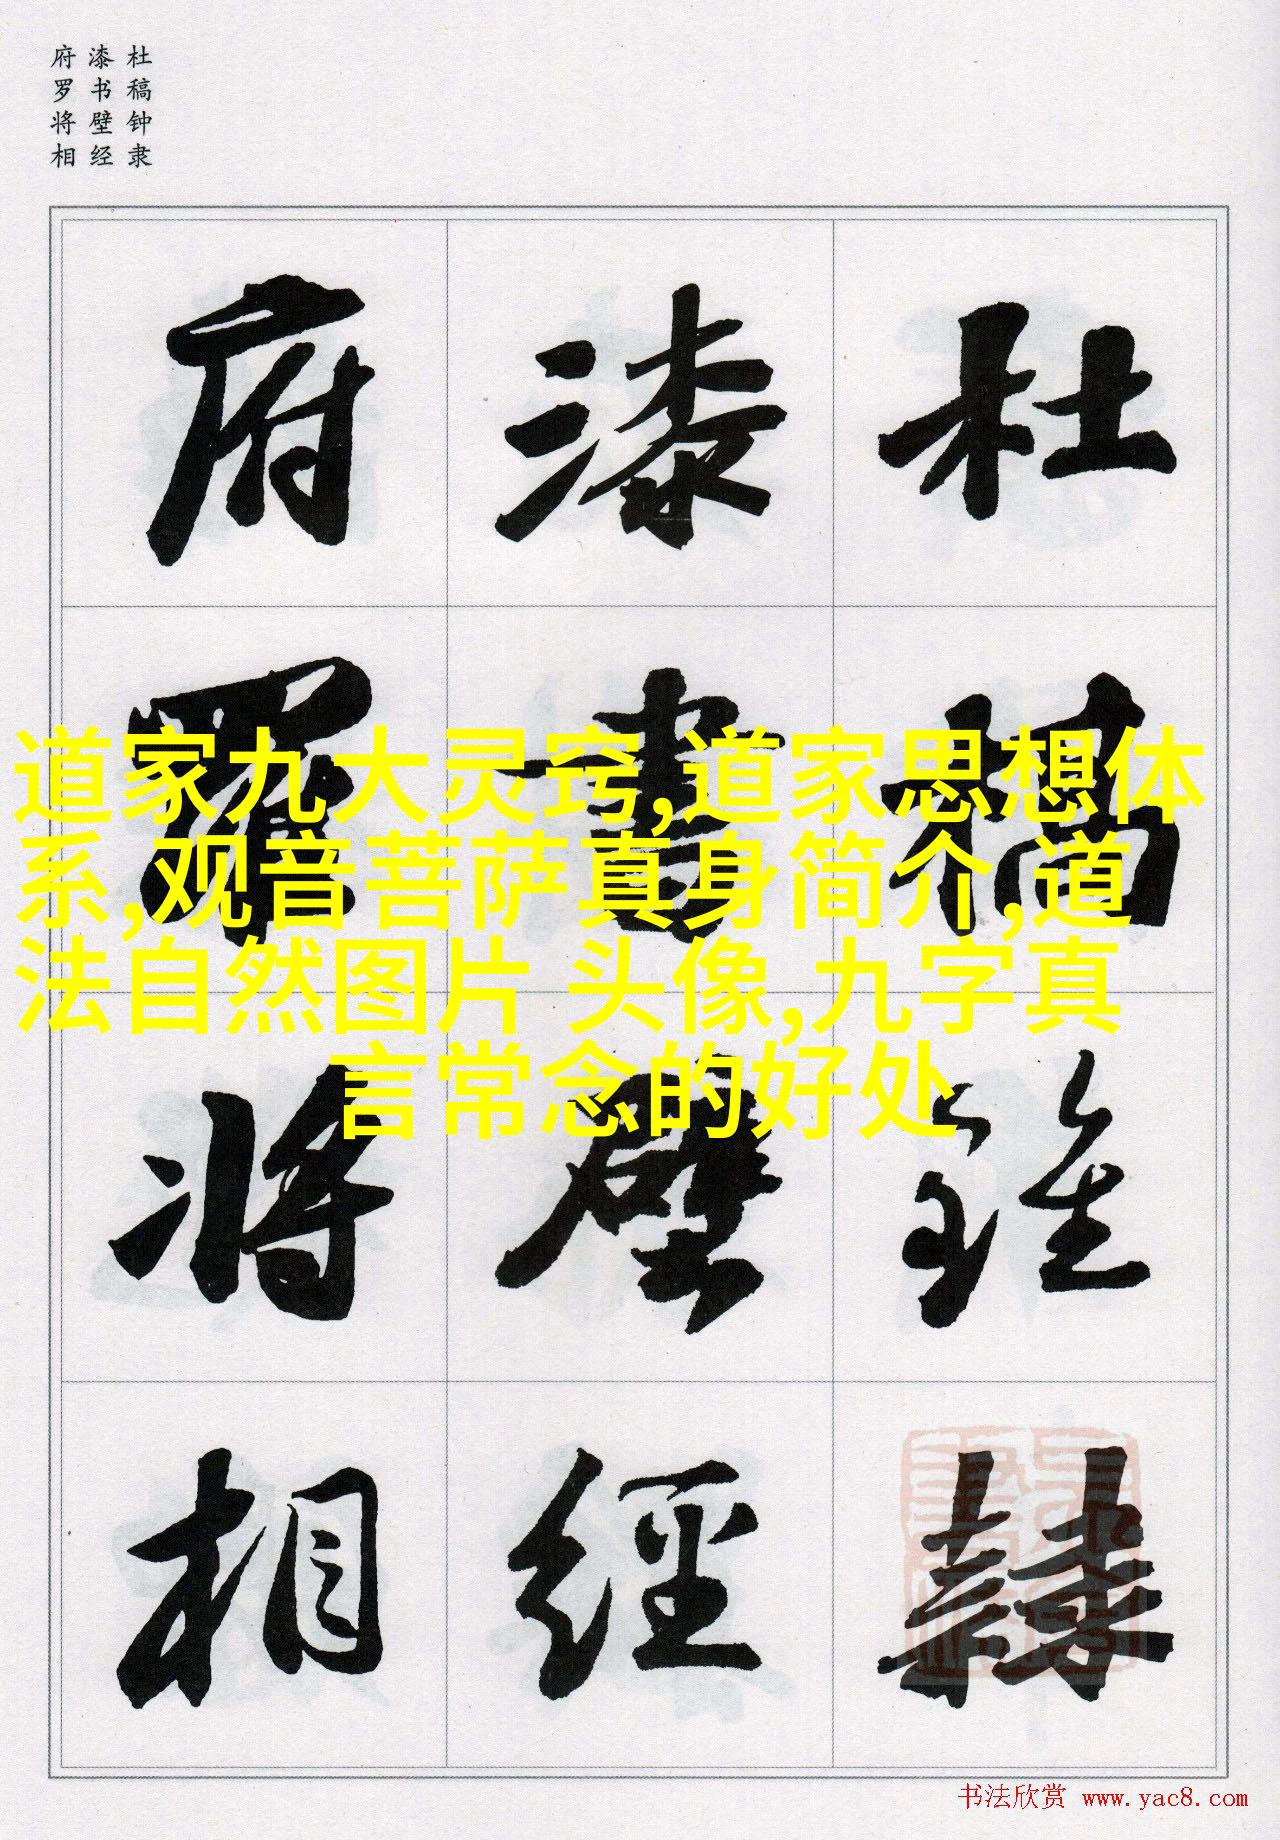 杜稿钟隶
漆书壁经
府罗将相
杜稾鍾隸
漆書壁經
府羅將相
道家九大灵窍,道家思想体
系,观音菩萨真身简介,道
法自然图片 头像,九字真
言常念的好处
书法欣赏 www.yac8.com